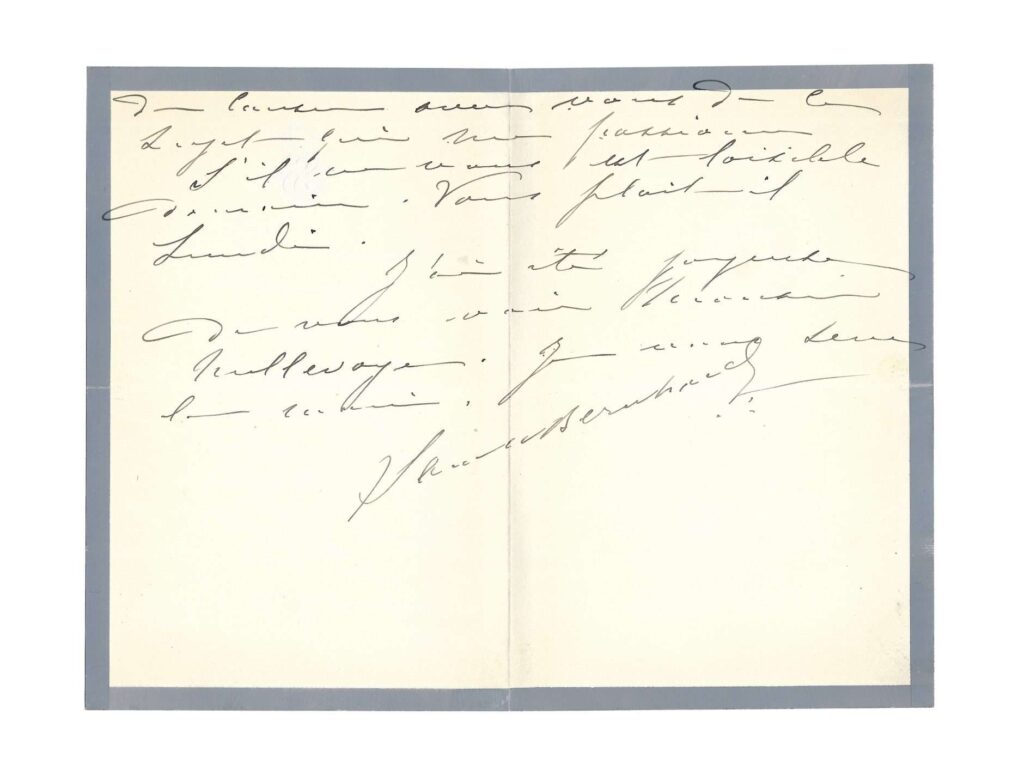 de causer avec vous de ce
sujet qui me passionne
S'il ne vous est loisible
demain. Vous plait-il
Lundi.
J'ai été joyeuse
de vous voir Monsieur
Millevoye. Je vous serre
la main.
Sarah Bernhardt